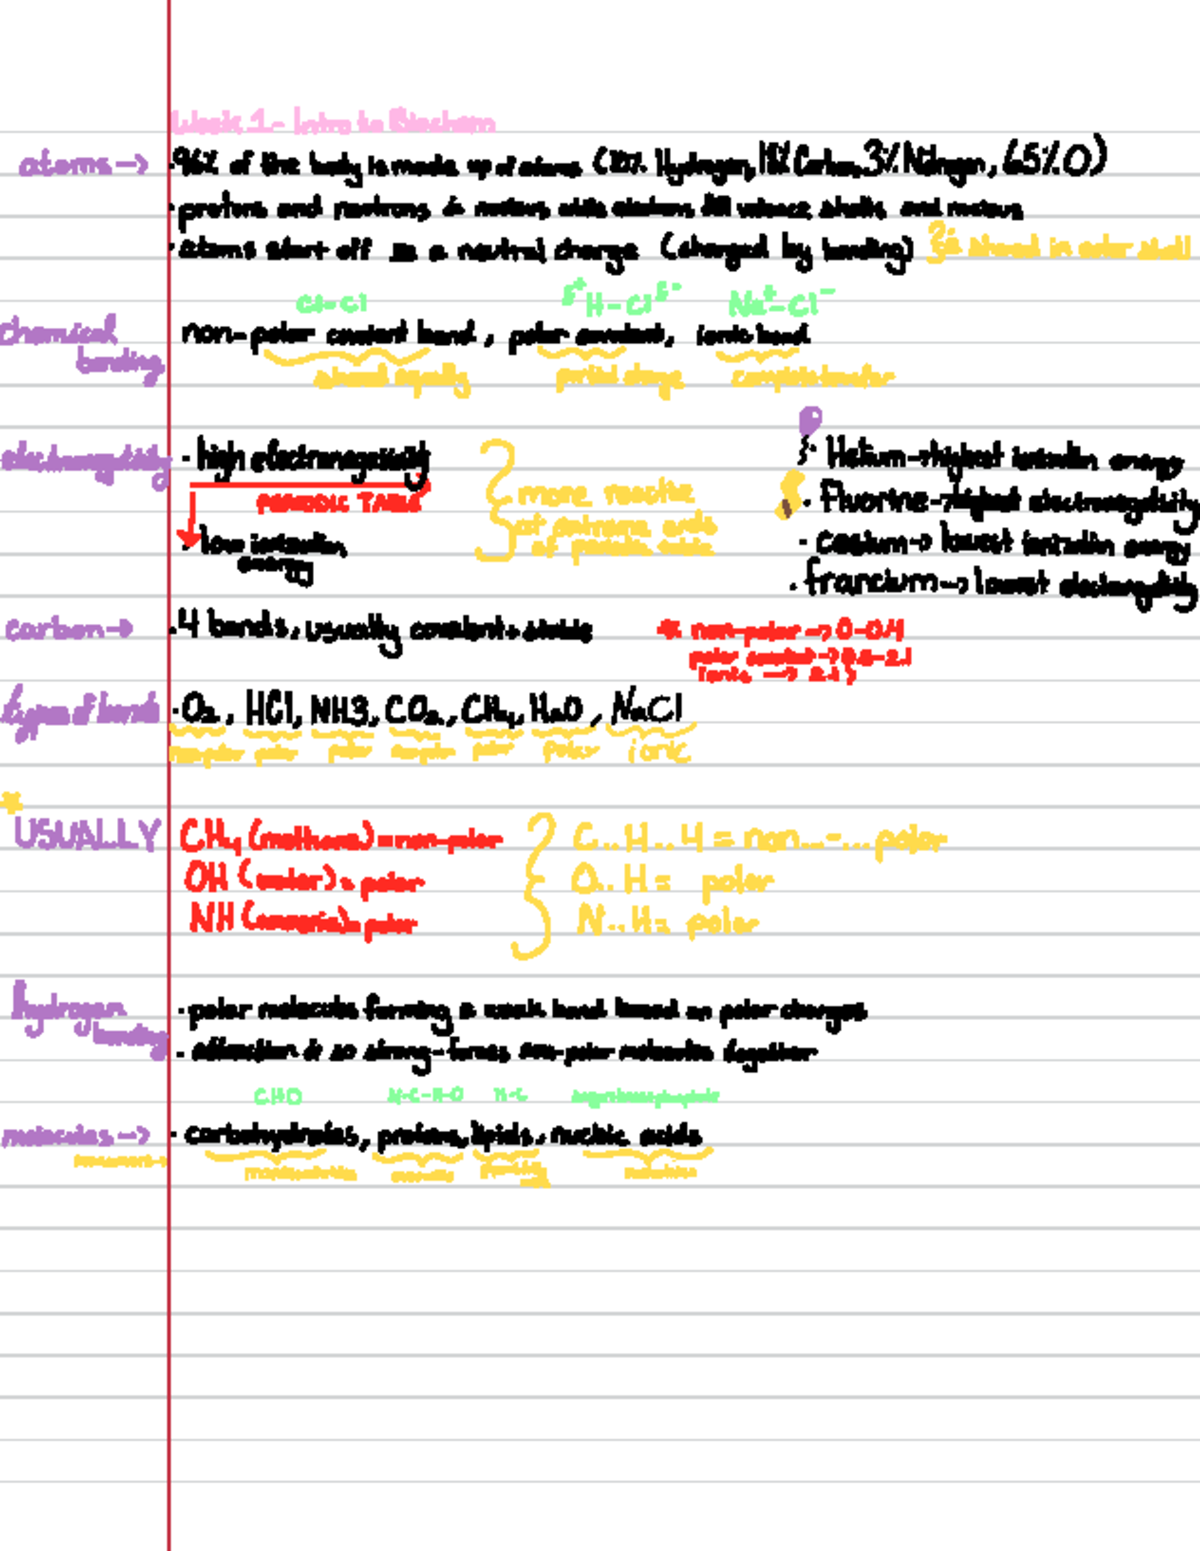 Week 1 - Intro to Biochem
atoms → · 96% of the body is made up of atoms (10% Hydrogen, 18% Carbon, 3% Nitrogen, 65% O)
· protons and neutrons in nucleus while electrons fill valence shells and nucleus
· atoms start off as a neutral charge (changed by bonding) shared in outer shell
Cl-Cl δ+ H-Cl δ- Na+-Cl-
chemical bonding non-polar covalent bond, polar covalent, ionic bond
shared equally partial charge complete transfer
electronegativity · high electronegativity
PERIODIC TABLE
· low ionization energy
more reactive
at extreme ends
of periodic table
· Helium → highest ionization energy
· Fluorine → highest electronegativity
· cesium → lowest ionization energy
· francium → lowest electronegativity
carbon → · 4 bonds, usually covalent + stable
* non-polar → 0-0.4
polar covalent → 0.5-2.1
ionic → 2.1 >
types of bonds · O2, HCl, NH3, CO2, CH4, H2O, NaCl
non-polar polar polar non-polar polar polar ionic
*
USUALLY CH4 (methane) = non-polar C..H..4 = non...-...polar
OH (water) = polar O..H = polar
NH (ammonia) = polar N..H = polar
hydrogen bonding · polar molecule forming a weak bond based on polar charges
· attraction is so strong - forces non-polar molecules together
CHO N-C-H-O H-C
molecules → · carbohydrates, proteins, lipids, nucleic acids